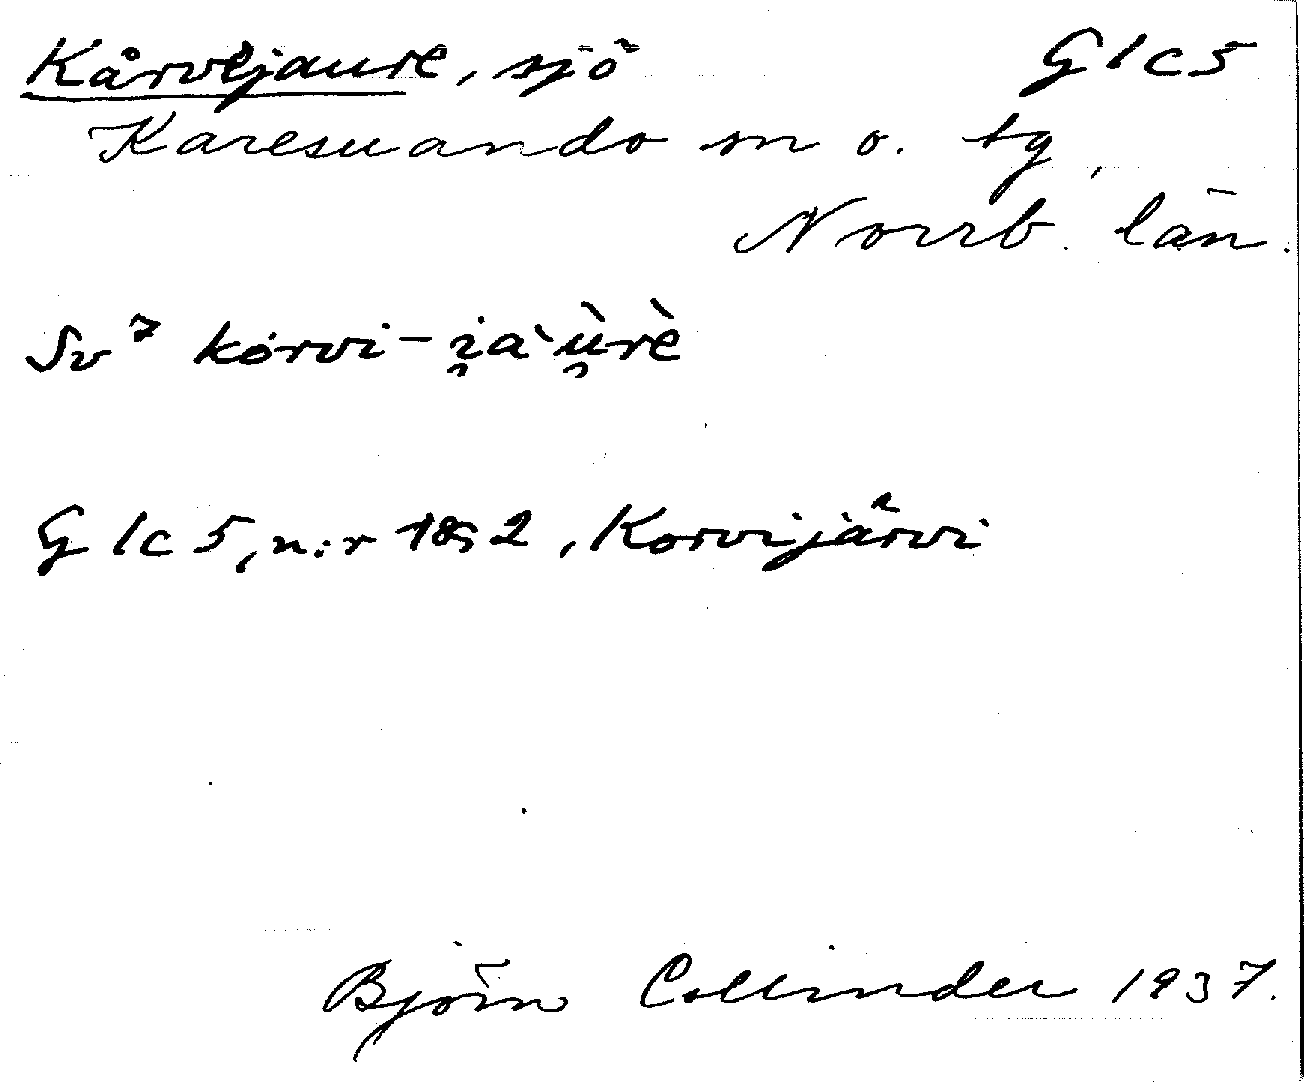 Kårvejaure, sjö G 1 c 5
Karesuando sn o. tg,
Norrb. län.
Sv⁷ kórvi-i̯aˋù̯rè
G 1 c 5, n:r 1852, Korvijärvi
Björn Collinder 1937.